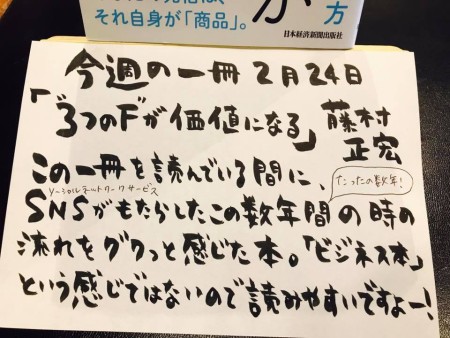 それ自身が「商品」。
方
日本経済新聞出版社
今週の一冊 2月24日
「3つのFが価値になる」藤村
正宏
この一冊を読んでいる間に、
たったの数年!
ソーシャルネットワークサービス
SNSがもたらしたこの数年間の時の
流れをグクっと感じた本。「ビジネス本」
という感じではないので読みやすいですよー!